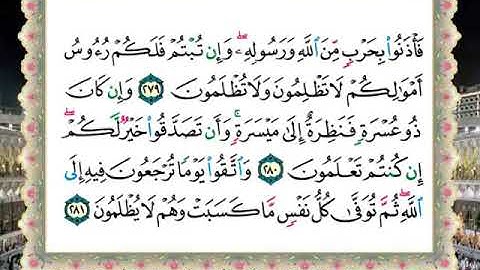 فَأْذَنُوا۟ بِحَرْبٍۢ مِّنَ ٱللَّهِ وَرَسُولِهِۦ ۖ وَإِن تُبْتُمْ فَلَكُمْ رُءُوسُ
أَمْوَٰلِكُمْ لَا تَظْلِمُونَ وَلَا تُظْلَمُونَ ٢٧٩ وَإِن كَانَ
ذُو عُسْرَةٍۢ فَنَظِرَةٌ إِلَىٰ مَيْسَرَةٍۢ ۚ وَأَن تَصَدَّقُوا۟ خَيْرٌۭ لَّكُمْ ۖ
إِن كُنتُمْ تَعْلَمُونَ ٢٨٠ وَٱتَّقُوا۟ يَوْمًۭا تُرْجَعُونَ فِيهِ إِلَى
ٱللَّهِ ۖ ثُمَّ تُوَفَّىٰ كُلُّ نَفْسٍۢ مَّا كَسَبَتْ وَهُمْ لَا يُظْلَمُونَ ٢٨١